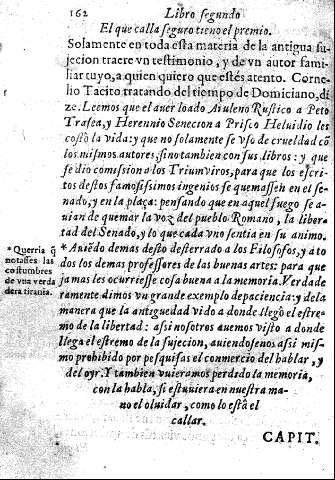 162 Libro segundo
El que calla seguro tiene el premio.
Solamente en toda esta materia de la antigua su-
jecion traere vn testimonio, y de vn autor fami-
liar tuyo, a quien quiero que estés atento. Corne-
lio Tacito tratando del tiempo de Domiciano, di
ze. Leemos que el auer loado Aruleno Rustico a Peto
Trasea, y Herennio Senecion a Prisco Heluidio les
costò la vida: y que no solamente se vso de crueldad cõ
los mismos autores, sino tambien con sus libros: y que
se dio comission a los Triumviros, para que los escri-
tos destos famosissimos ingenios se quemassen en el se-
nado, y en la plaça: pensando que en aquel fuego se a-
uian de quemar la voz del pueblo Romano, la liber-
tad del Senado, y lo que cada vno sentia en su animo.
* Auiẽdo demas desto desterrado a los Filosofos, y a to
dos los demas professores de las buenas artes: para que
jamas les ocurriesse cosa buena a la memoria. Verdade
ramente dimos vn grande exemplo de paciencia: y de la
manera que la antiguedad vido a donde llegò el estre-
mo de la libertad: assi nosotros auemos visto a donde
llega el estremo de la sujecion, auiendosenos assi mis-
mo prohibido por pesquisas el conmercio del hablar, y
del oyr. Y tambien vuieramos perdido la memoria,
con la habla, si estuuiera en nuestra ma-
no el oluidar, como lo està el
callar.
* Querria q̃
notasses las
costumbres
de vna verda
dera tirania.
CAPIT.